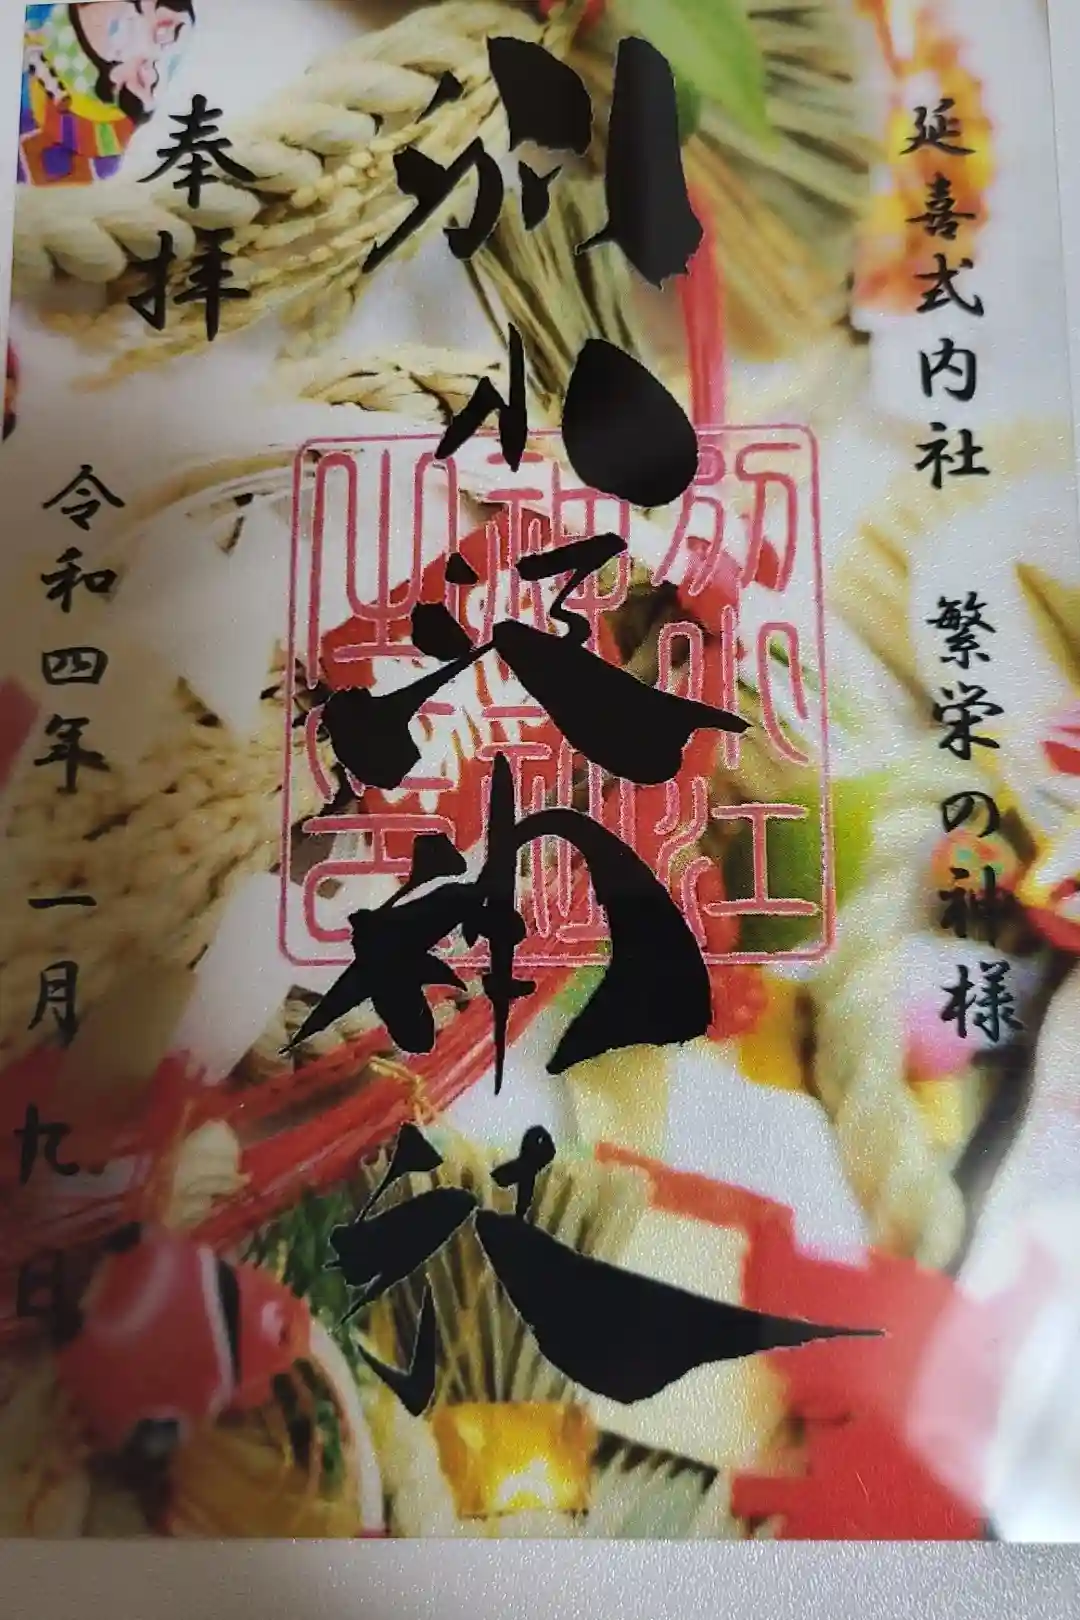 延喜式内社 繁栄の神様
別小江神社
別小江
神社
之印
奉拝
令和四年一月九日